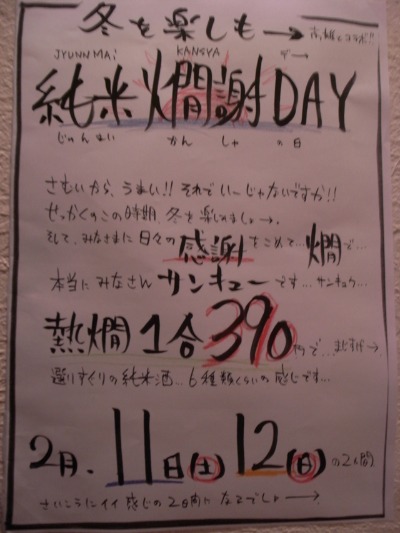 冬を楽しも→
JYUNNMAi KANSYA デー
純米燗謝DAY
じゅんまい かん しゃ の日
さむいから、うまい!! それでいーじゃないですか!!
せっかくのこの時期、冬を楽しみましょ→。
そして、みなさまに日々の感謝をこめて…燗で…
本当にみなさんサンキューです…サンキュウ…
熱燗1合390円で…
選りすぐりの純米酒…6種類くらいの感じです…
2月、11日(土)12(日)の2日間
さいこうにイイ感じの2日間になるでしょ→